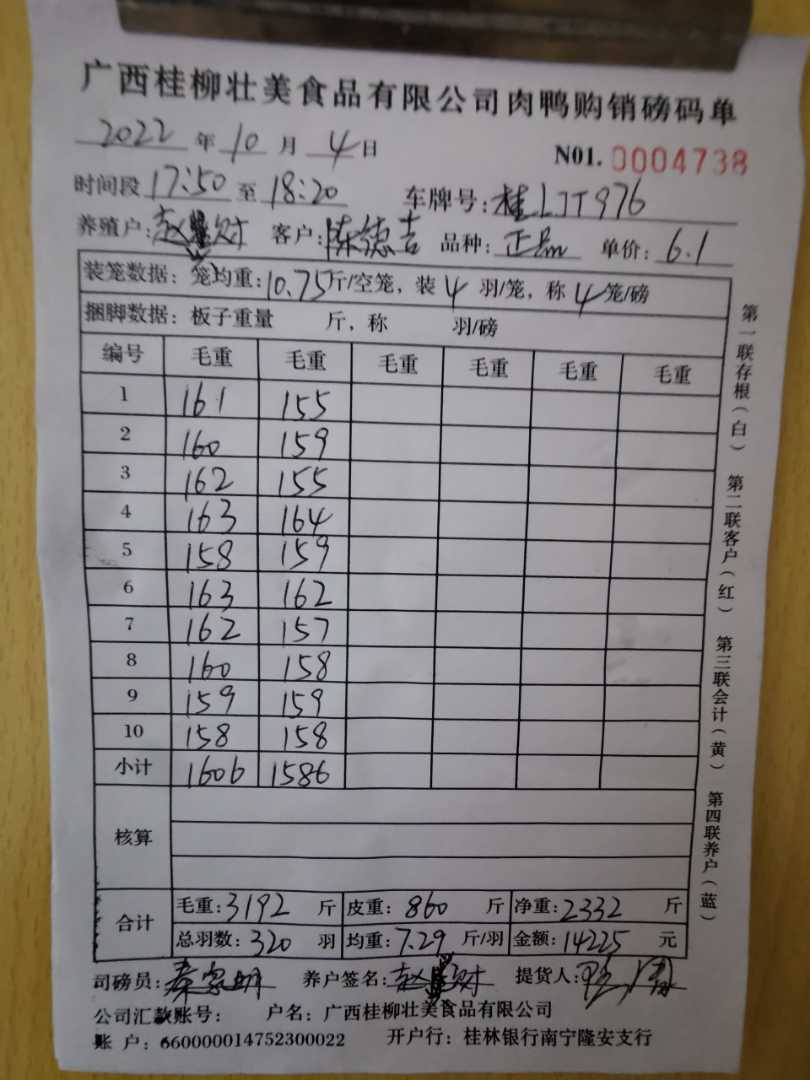 广西桂柳壮美食品有限公司肉鸭购销磅码单
2022 年 10 月 4 日 N01. 0004738
时间段 17:50 至 18:20 车牌号: 桂LJT976
养殖户: 赵 财 客户: 陈德吉 品种: 正品 单价: 6.1
装笼数据: 笼均重: 10.75 斤/空笼, 装 4 羽/笼, 称 4 笼/磅
捆脚数据: 板子重量 斤, 称 羽/磅
编号 毛重 毛重 毛重 毛重 毛重 毛重
1 161 155
2 160 159
3 162 155
4 163 164
5 158 159
6 163 162
7 162 157
8 160 158
9 159 159
10 158 158
小计 1606 1586
核算
合计
毛重: 3192 斤 皮重: 860 斤 净重: 2332 斤
总羽数: 320 羽 均重: 7.29 斤/羽 金额: 14225 元
司磅员: 养户签名: 赵 财 提货人:
公司汇款账号: 户名: 广西桂柳壮美食品有限公司
账 户: 660000014752300022 开户行: 桂林银行南宁隆安支行
第一联存根(白) 第二联客户(红) 第三联会计(黄) 第四联养户(蓝)